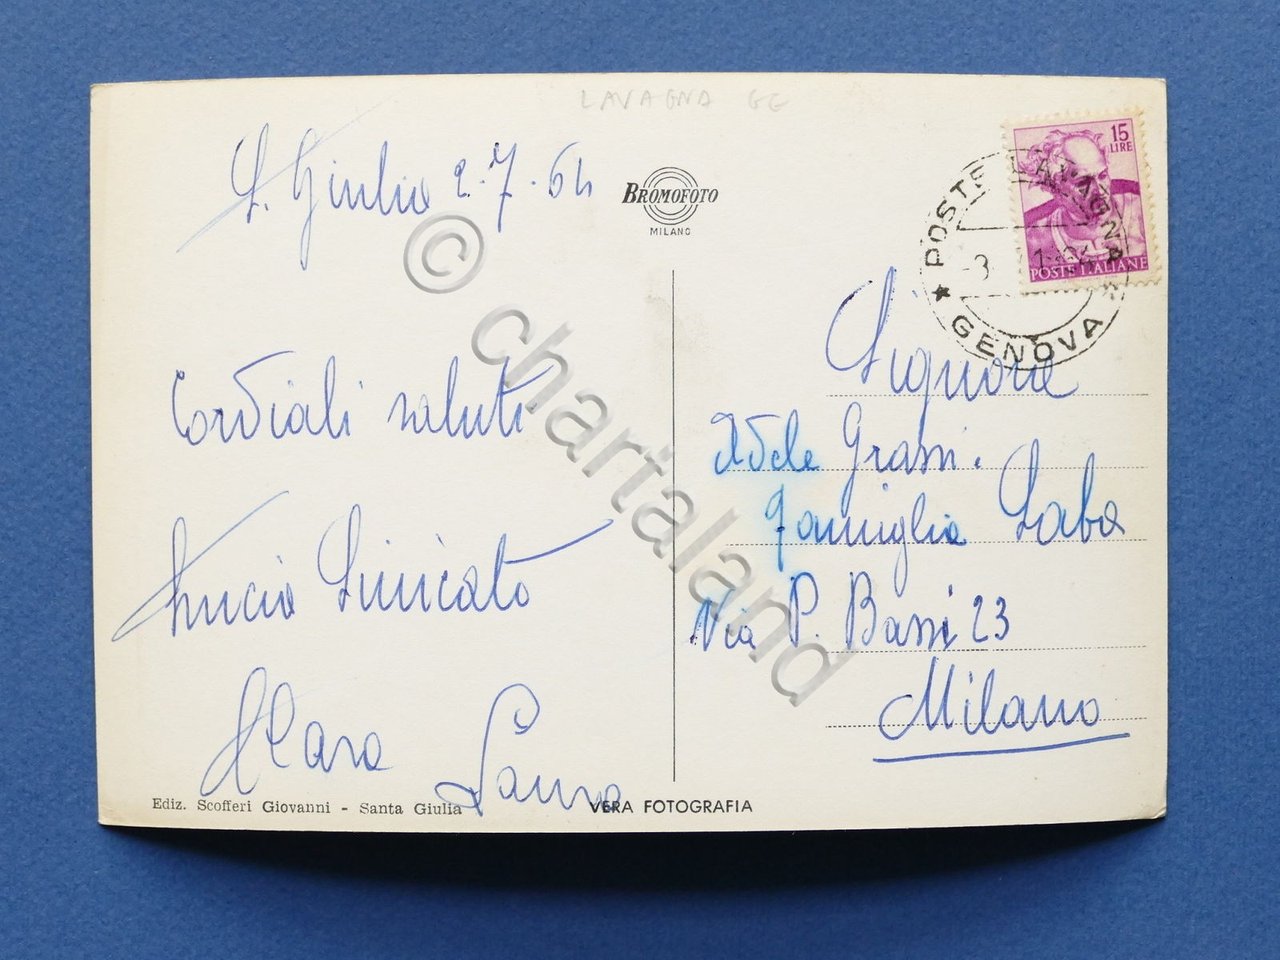 LAVAGNA GE
S. Giulia 2.7.64
BROMOFOTO
MILANO
15
LIRE
POSTE ITALIANE
POSTE LAVAGNA
GENOVA
Cordiali saluti
Lucia
Clara
Laura
Signora
Adele Grassi
Famiglia Laba
Via P. Bassi 23
Milano
Ediz. Scofferi Giovanni - Santa Giulia
VERA FOTOGRAFIA
© chartaland